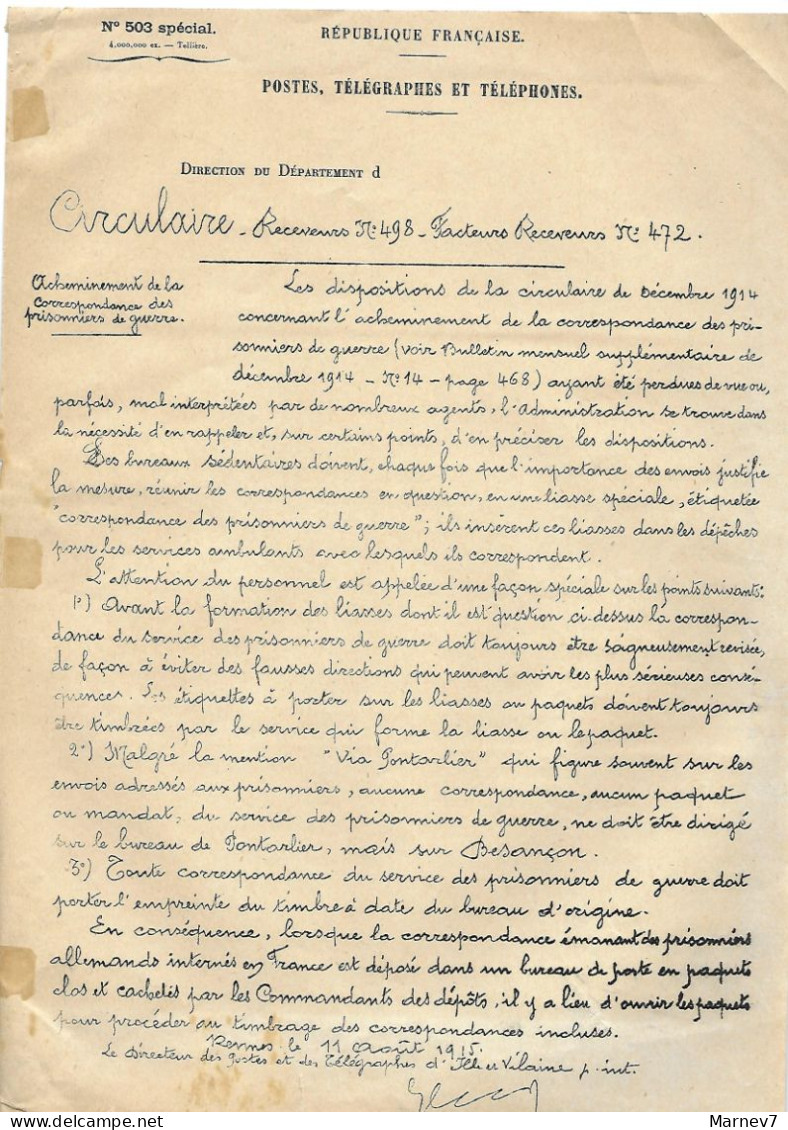 N° 503 spécial.
4,000,000 ex. — Tellière.
RÉPUBLIQUE FRANÇAISE.
POSTES, TÉLÉGRAPHES ET TÉLÉPHONES.
DIRECTION DU DÉPARTEMENT d
Circulaire - Receveurs N° 498 - Facteurs Receveurs N° 472.
Acheminement de la
correspondance des
prisonniers de guerre.
Les dispositions de la circulaire de Décembre 1914
concernant l'acheminement de la correspondance des pri-
sonniers de guerre (voir Bulletin mensuel supplémentaire de
décembre 1914 - N° 14 - page 468) ayant été perdues de vue ou,
parfois, mal interprétées par de nombreux agents, l'Administration se trouve dans
la nécessité d'en rappeler et, sur certains points, d'en préciser les dispositions.
Les bureaux sédentaires doivent, chaque fois que l'importance des envois justifie
la mesure, réunir les correspondances en question, en une liasse spéciale, étiquetée
"correspondance des prisonniers de guerre"; ils insèrent ces liasses dans les dépêches
pour les services ambulants avec lesquels ils correspondent.
L'attention du personnel est appelée d'une façon spéciale sur les points suivants:
1°) Avant la formation des liasses dont il est question ci-dessus la correspon-
dance du service des prisonniers de guerre doit toujours être soigneusement revisée,
de façon à éviter des fausses directions qui peuvent avoir les plus sérieuses consé-
quences. Les étiquettes à porter sur les liasses ou paquets doivent toujours
être timbrées par le service qui forme la liasse ou le paquet.
2°) Malgré la mention "Via Pontarlier" qui figure souvent sur les
envois adressés aux prisonniers, aucune correspondance, aucun paquet
ou mandat, du service des prisonniers de guerre, ne doit être dirigé
sur le bureau de Pontarlier, mais sur Besançon.
3°) Toute correspondance du service des prisonniers de guerre doit
porter l'empreinte du timbre à date du bureau d'origine.
En conséquence, lorsque la correspondance émanant des prisonniers
allemands internés en France est déposé dans un bureau de poste en paquets
clos et cachetés par les Commandants des dépôts, il y a lieu d'ouvrir les paquets
pour procéder au timbrage des correspondances incluses.
Rennes le 11 Août 1915.
Le Directeur des Postes et des Télégraphes d'Ille et Vilaine p. int.
Marnev7